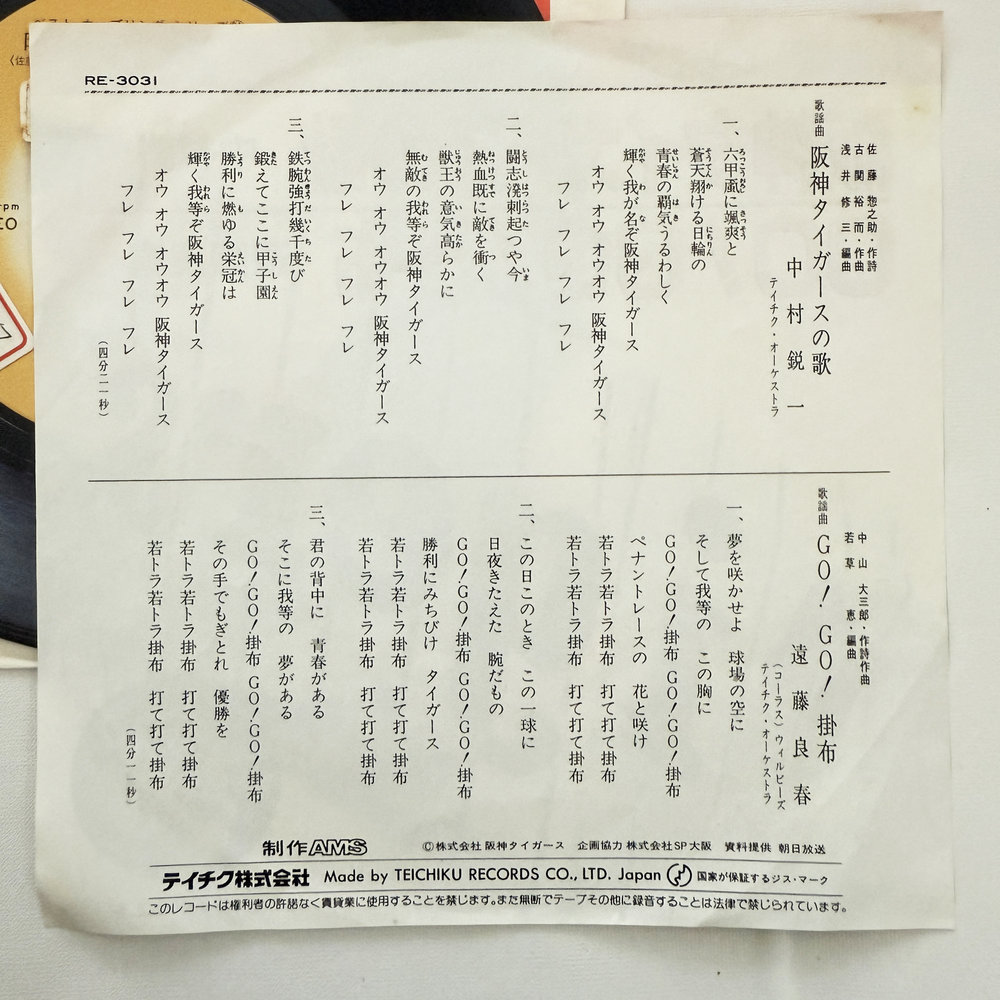 RE-3031
歌謡曲 阪神タイガースの歌
佐藤惣之助・作詩
古関裕而・作曲
浅井修三・編曲
中村鋭一
テイチク・オーケストラ
一、六甲颪に颯爽と
蒼天翔ける日輪の
青春の覇気うるわしく
輝く我が名ぞ阪神タイガース
オウ オウ オウオウ 阪神タイガース
フレ フレ フレ フレ
二、闘志溌刺起つや今
熱血既に敵を衝く
獣王の意気高らかに
無敵の我等ぞ阪神タイガース
オウ オウ オウオウ 阪神タイガース
フレ フレ フレ フレ
三、鉄腕強打幾千度び
鍛えてここに甲子園
勝利に燃ゆる栄冠は
輝く我等ぞ阪神タイガース
オウ オウ オウオウ 阪神タイガース
フレ フレ フレ フレ
(四分二一秒)
歌謡曲 GO!GO!掛布
中山大三郎・作詩作曲
若草恵・編曲
遠藤良春
(コーラス)ウィルビーズ
テイチク・オーケストラ
一、夢を咲かせよ 球場の空に
そして我等の この胸に
GO!GO!掛布 GO!GO!掛布
ペナントレースの 花と咲け
若トラ若トラ掛布 打て打て掛布
若トラ若トラ掛布 打て打て掛布
二、この日このとき この一球に
日夜きたえた 腕だもの
GO!GO!掛布 GO!GO!掛布
勝利にみちびけ タイガース
若トラ若トラ掛布 打て打て掛布
若トラ若トラ掛布 打て打て掛布
三、君の背中に 青春がある
そこに我等の 夢がある
GO!GO!掛布 GO!GO!掛布
その手でもぎとれ 優勝を
若トラ若トラ掛布 打て打て掛布
若トラ若トラ掛布 打て打て掛布
(四分一一秒)
制作AMS ©株式会社 阪神タイガース 企画協力 株式会社SP大阪 資料提供 朝日放送
テイチク株式会社 Made by TEICHIKU RECORDS CO., LTD. Japan 国家が保証するジス・マーク
このレコードは権利者の許諾なく賃貸業に使用することを禁じます。また無断でテープその他に録音することは法律で禁じられています。